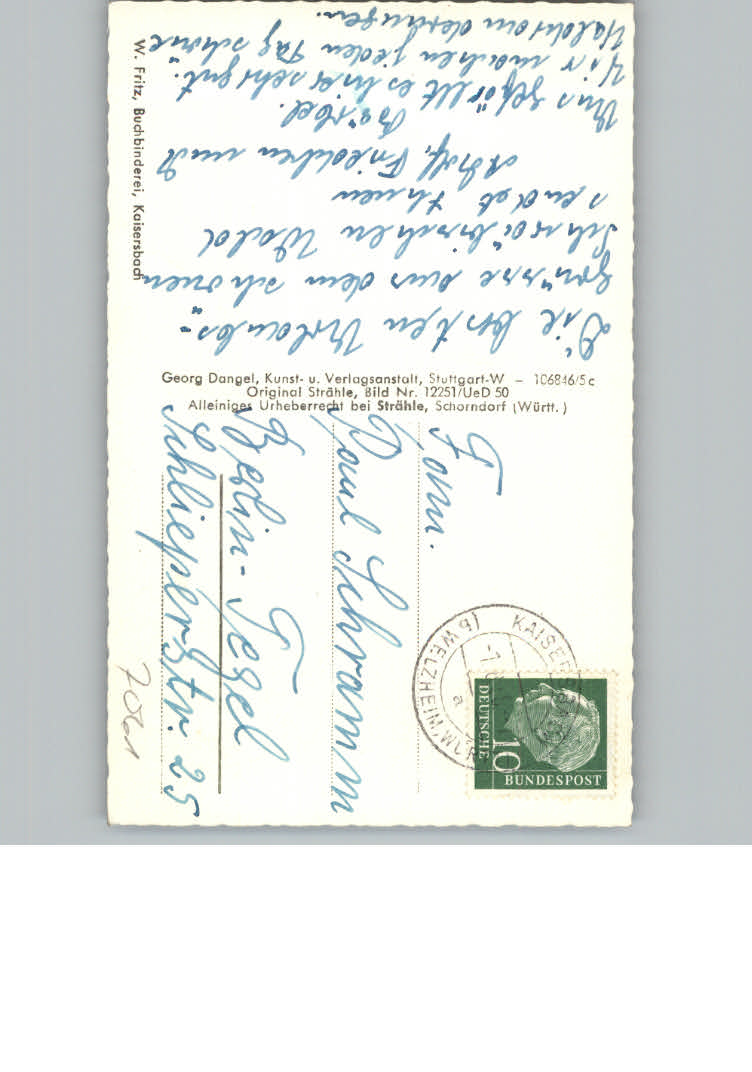 Die besten Urlaubs-
grüsse aus dem schönen
Schwäbischen Wald
sendet Ihnen
Adolf, Friedchen und
Bärbel.
Uns gefällt es hier sehr gut.
Wir machen jeden Tag schöne
Waldwanderungen.
W. Fritz, Buchbinderei, Kaisersbach
Georg Dangel, Kunst- u. Verlagsanstalt, Stuttgart-W – 106846/5c
Original Strähle, Bild Nr. 12251/UeD 50
Alleiniges Urheberrecht bei Strähle, Schorndorf (Württ.)
Fam.
Paul Schramm
Berlin-Tegel
Schlieperstr. 25
KAISERSBACH
(WELZHEIM, WÜRTT
a
10
DEUTSCHE
BUNDESPOST